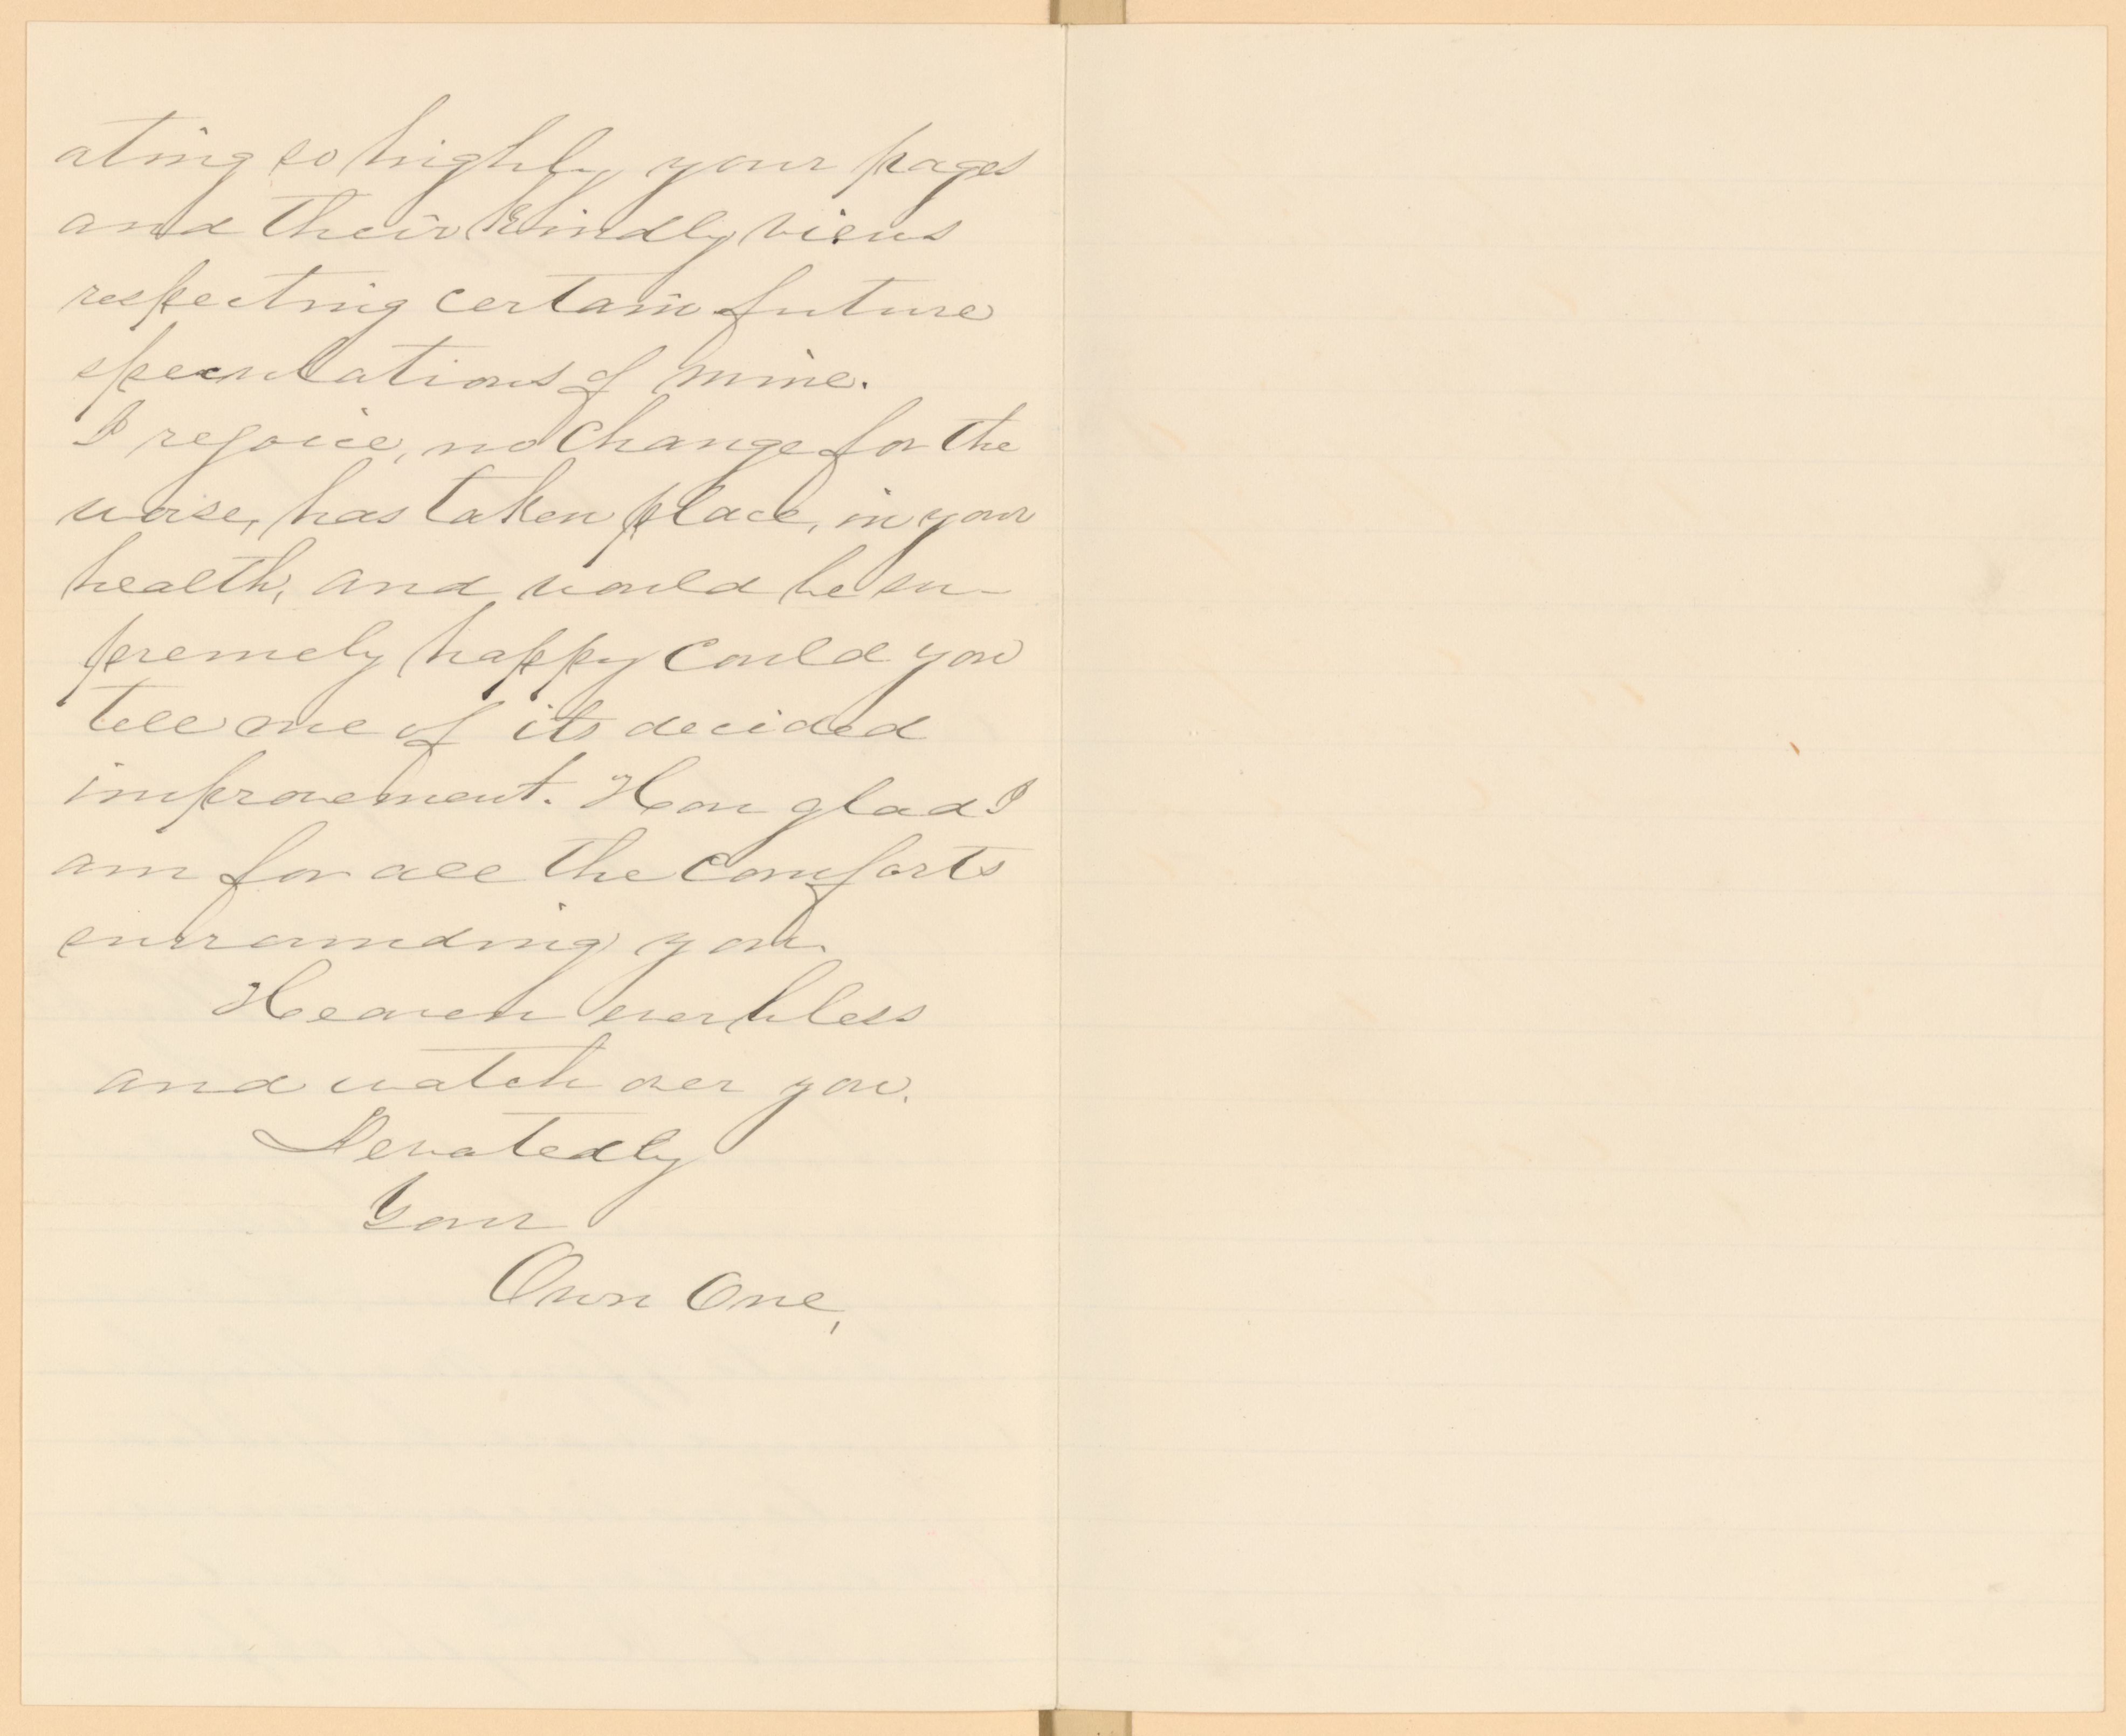 ating so highly your pages
and their kindly views
respecting certain future
speculations of mine.
I rejoice, no change for the
worse, has taken place, in your
health, and would be su-
premely happy could you
tell me of its decided
improvement. How glad I
am for all the comforts
surrounding you.
Heaven ever bless
and watch over you.
Devotedly
Your
Own One,